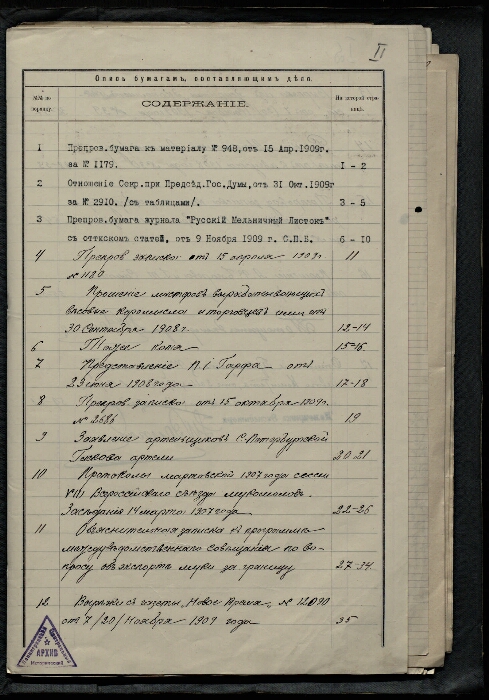 II
Опись бумагамъ, составляющимъ дѣло.
№№ по порядку.
СОДЕРЖАНІЕ.
На которой стра ницѣ.
1 Препров.бумага къ матеріалу № 948,отъ 15 Апр.1909г.
за № 1179. 1 - 2
2 Отношеніе Секр.при Предсѣд.Гос.Думы,отъ 31 Окт.1909г
за № 2910. /съ таблицами/. 3 - 5
3 Препров.бумага журнала "Русскій Мельничный Листокъ"
съ оттиском статей, отъ 9 Ноября 1909 г. С.П.Б. 6 - 10
4 Препров записка отъ 15 апреля 1909г. 11
№ 1180
5 Прошение мастеровъ вырабатывающихъ
весовые коромысла и торговцевъ ими отъ
30 Сентября 1908 г. 12-14
6 Тоже копия 15-16
7 Представление П. І. Гарфа отъ
23 июня 1908 года 17-18
8 Препров. записка отъ 15 октября 1909г.
№ 2686 19
9 Заявление артельщиковъ С. Петербургской
артели 20-21
10 Протоколы мартовской 1907 года сессии
VIII Всероссийского съезда мукомоловъ.
Заседания 14 марта 1907 года. 22-26
11 Объяснительная записка къ программе
междуведомственного совещания по во-
просу объ экспорте муки за границу 27-34.
12 Вырезки съ газеты "Новое Время" № 12090
от 7/20/ Ноября 1909 года 35
АРХИВ
Исторический